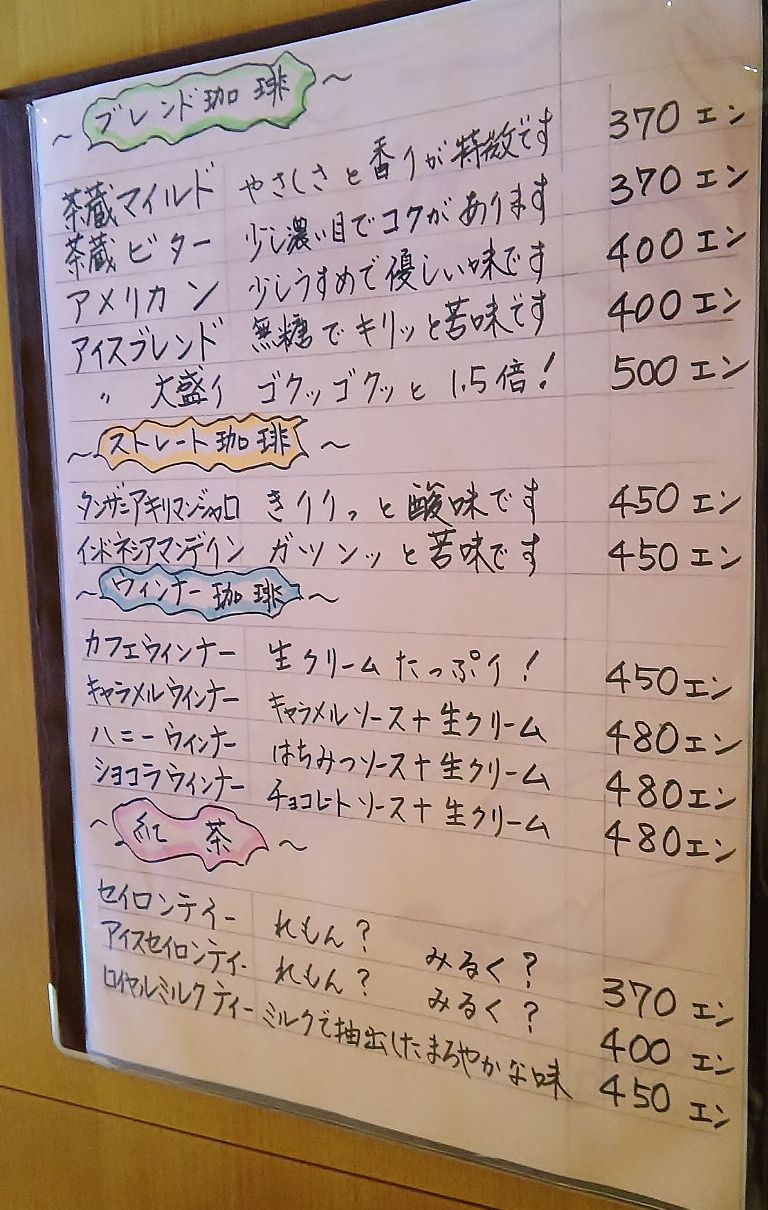 ～ブレンド珈琲～
茶蔵マイルド やさしさと香りが特徴です 370エン
茶蔵ビター 少し濃い目でコクがあります 370エン
アメリカン 少しうすめで優しい味です 400エン
アイスブレンド 無糖でキリッと苦味です 400エン
〃 大盛り ゴクッゴクッと1.5倍！ 500エン
～ストレート珈琲～
タンザニアキリマンジャロ きりりっと酸味です 450エン
インドネシアマンデリン ガツンッと苦味です 450エン
～ウィンナー珈琲～
カフェウィンナー 生クリームたっぷり！ 450エン
キャラメルウィンナー キャラメルソース＋生クリーム 480エン
ハニーウィンナー はちみつソース＋生クリーム 480エン
ショコラウィンナー チョコレートソース＋生クリーム 480エン
～紅茶～
セイロンティー れもん？ みるく？ 370エン
アイスセイロンティー れもん？ みるく？ 400エン
ロイヤルミルクティー ミルクで抽出したまろやかな味 450エン